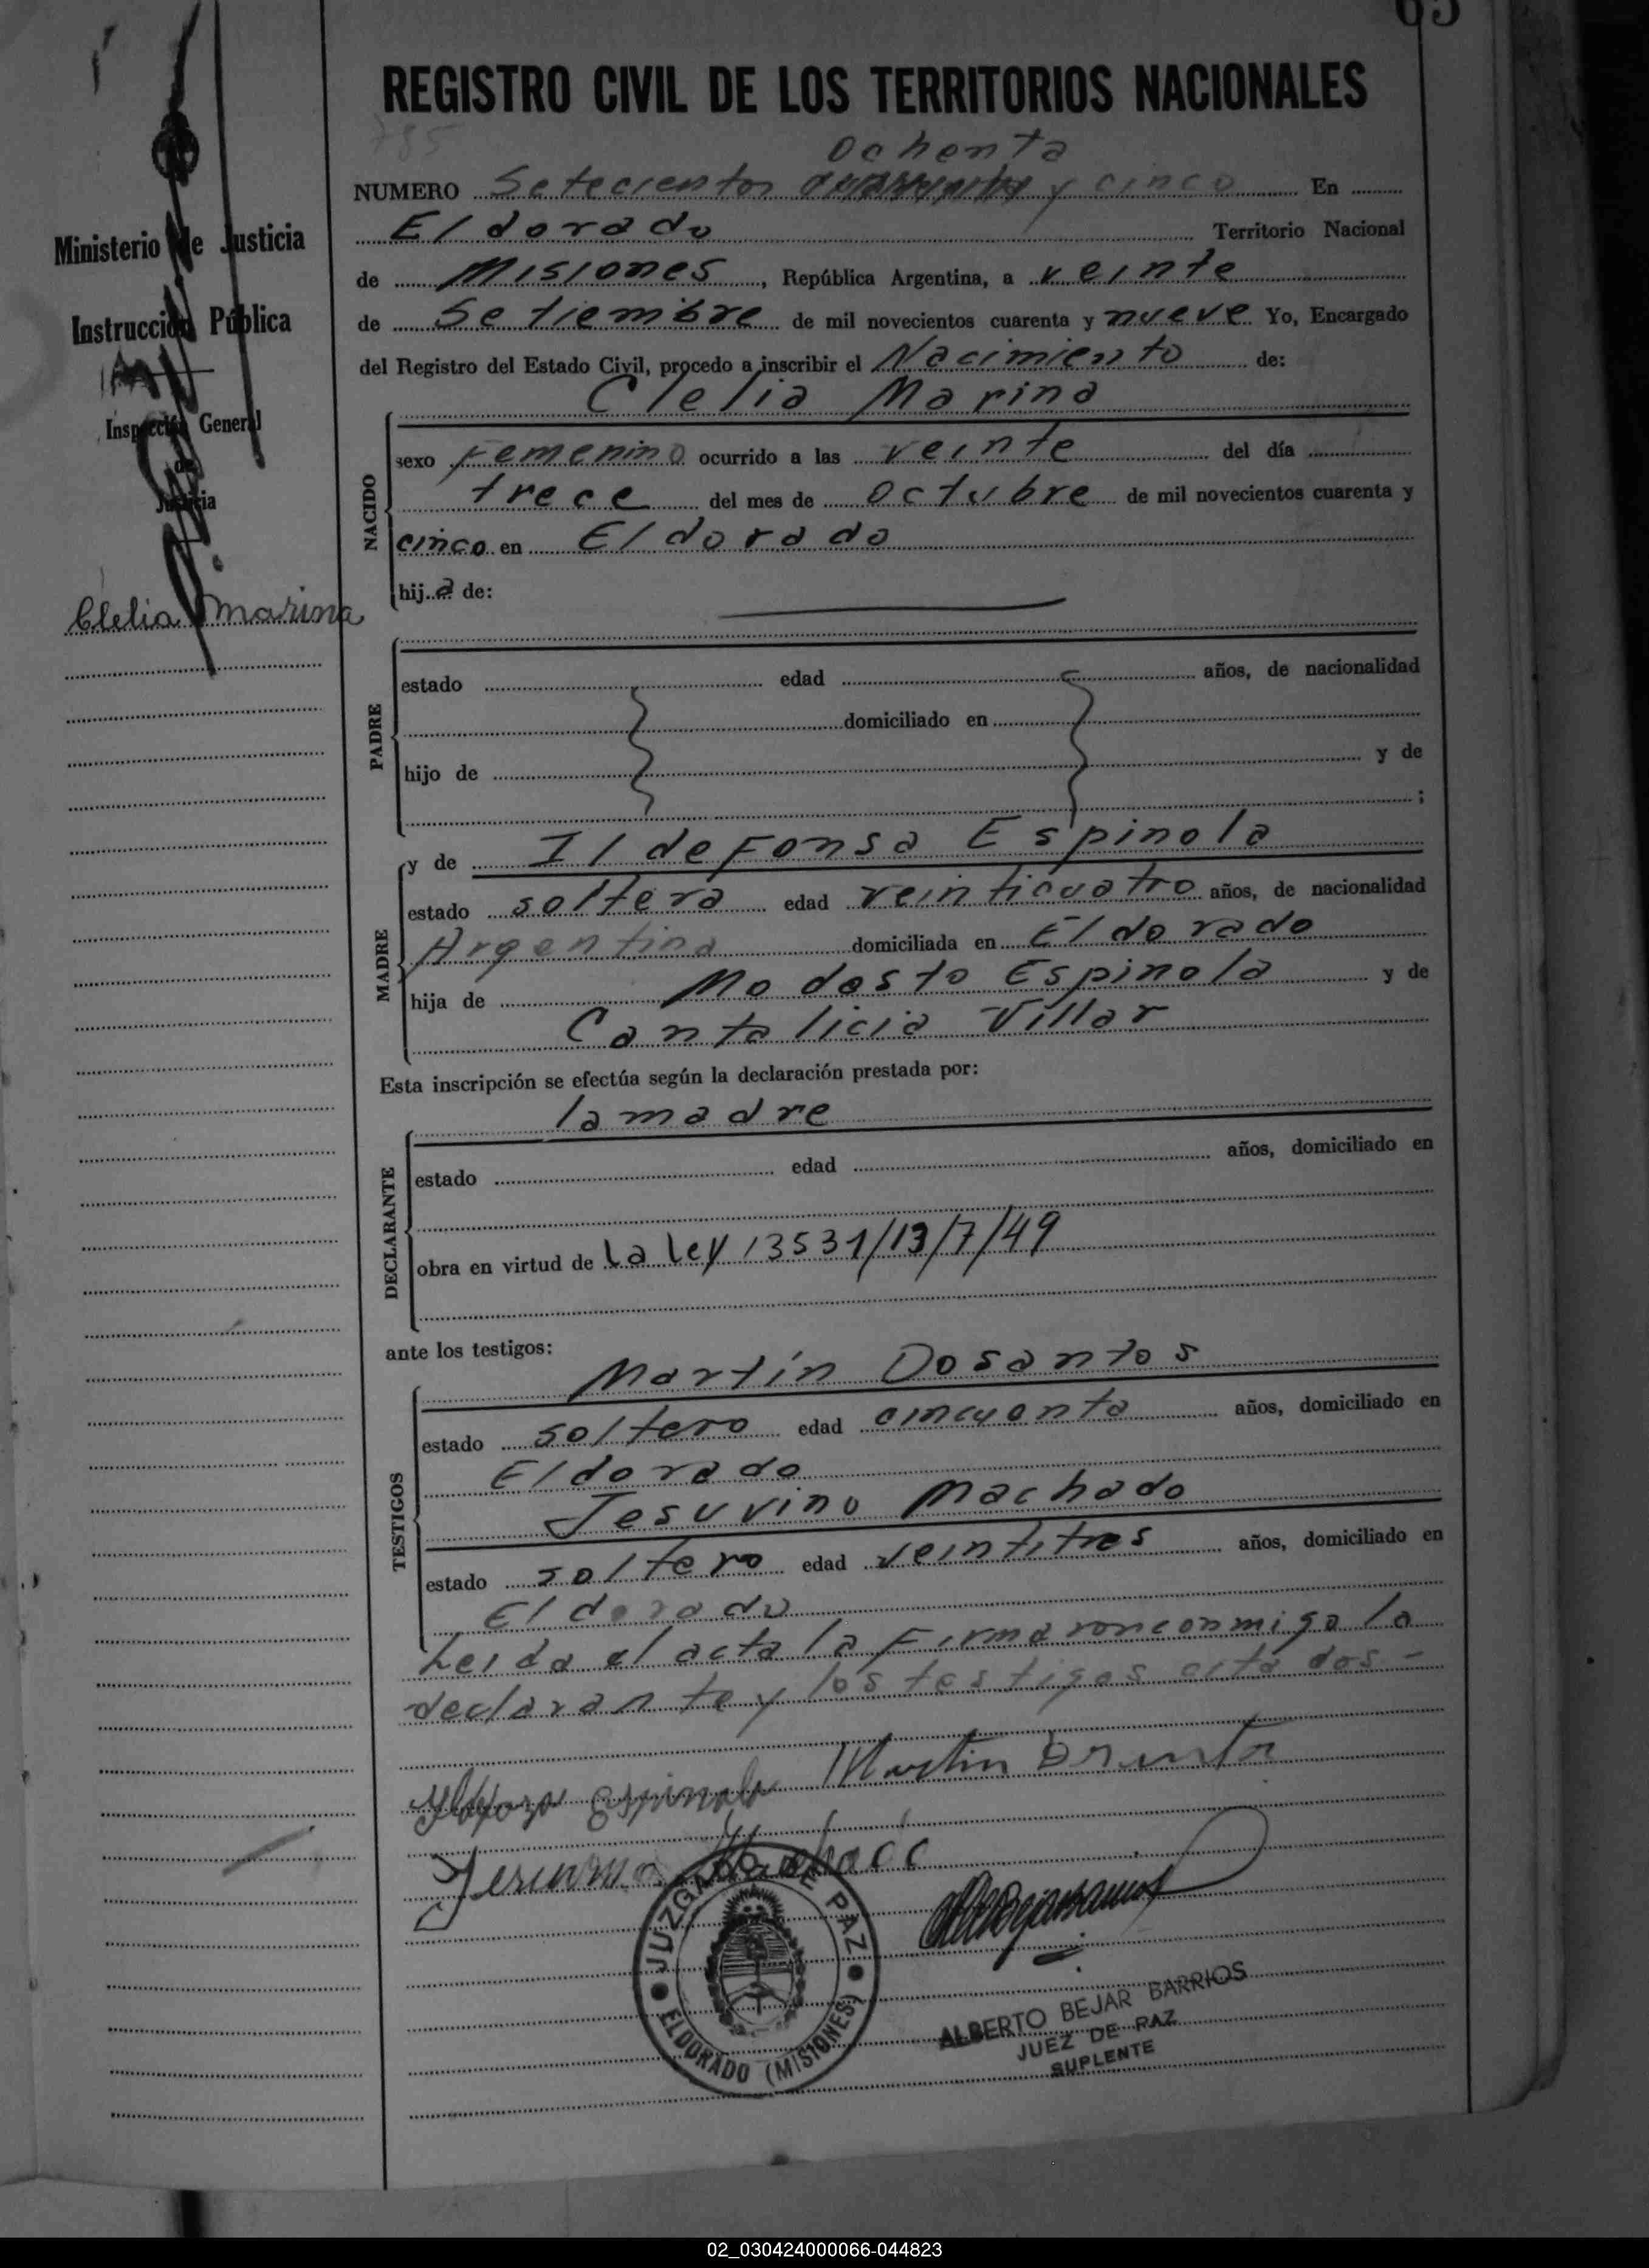 65
REGISTRO CIVIL DE LOS TERRITORIOS NACIONALES
785
Ochenta
NUMERO Setecientos y cinco En
Eldorado Territorio Nacional
de Misiones, República Argentina, a veinte
de Setiembre de mil novecientos cuarenta y nueve Yo, Encargado
del Registro del Estado Civil, procedo a inscribir el Nacimiento de:
Clelia Marina
NACIDO
sexo Femenino ocurrido a las veinte del día
trece del mes de octubre de mil novecientos cuarenta y
cinco en Eldorado
hija de:
PADRE
estado edad años, de nacionalidad
domiciliado en
hijo de y de
;
MADRE
y de Ildefonsa Espinola
estado soltera edad veinticuatro años, de nacionalidad
Argentina domiciliada en Eldorado
hija de Modesto Espinola y de
Cantalicia Villar
Esta inscripción se efectúa según la declaración prestada por:
la madre
DECLARANTE
estado edad años, domiciliado en
obra en virtud de La Ley 13531/13/7/49
ante los testigos:
Martín Dosantos
TESTIGOS
estado soltero edad cincuenta años, domiciliado en
Eldorado
Jesuvino Machado
estado soltero edad veintitres años, domiciliado en
Eldorado
Leida el acta la Firmaron conmigo la
declarante y los testigos citados -
Espinola Martin
Machado
JUZGADO DE PAZ
ELDORADO (MISIONES)
ALBERTO BEJAR BARRIOS
JUEZ DE PAZ
SUPLENTE
Ministerio de Justicia
Instrucción Pública
Inspección General
de
Justicia
Clelia Marina
02_030424000066-044823